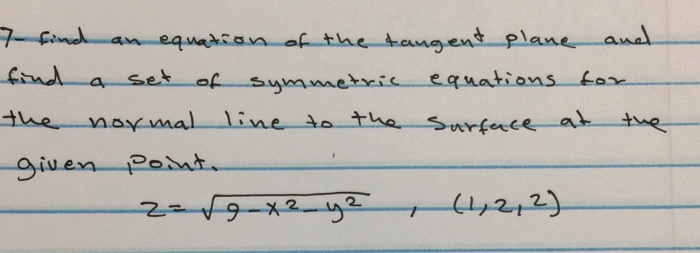 7- find an equation of the tangent plane and
find a set of symmetric equations for
the normal line to the surface at the
given point.
z = √9-x²-y² , (1,2,2)